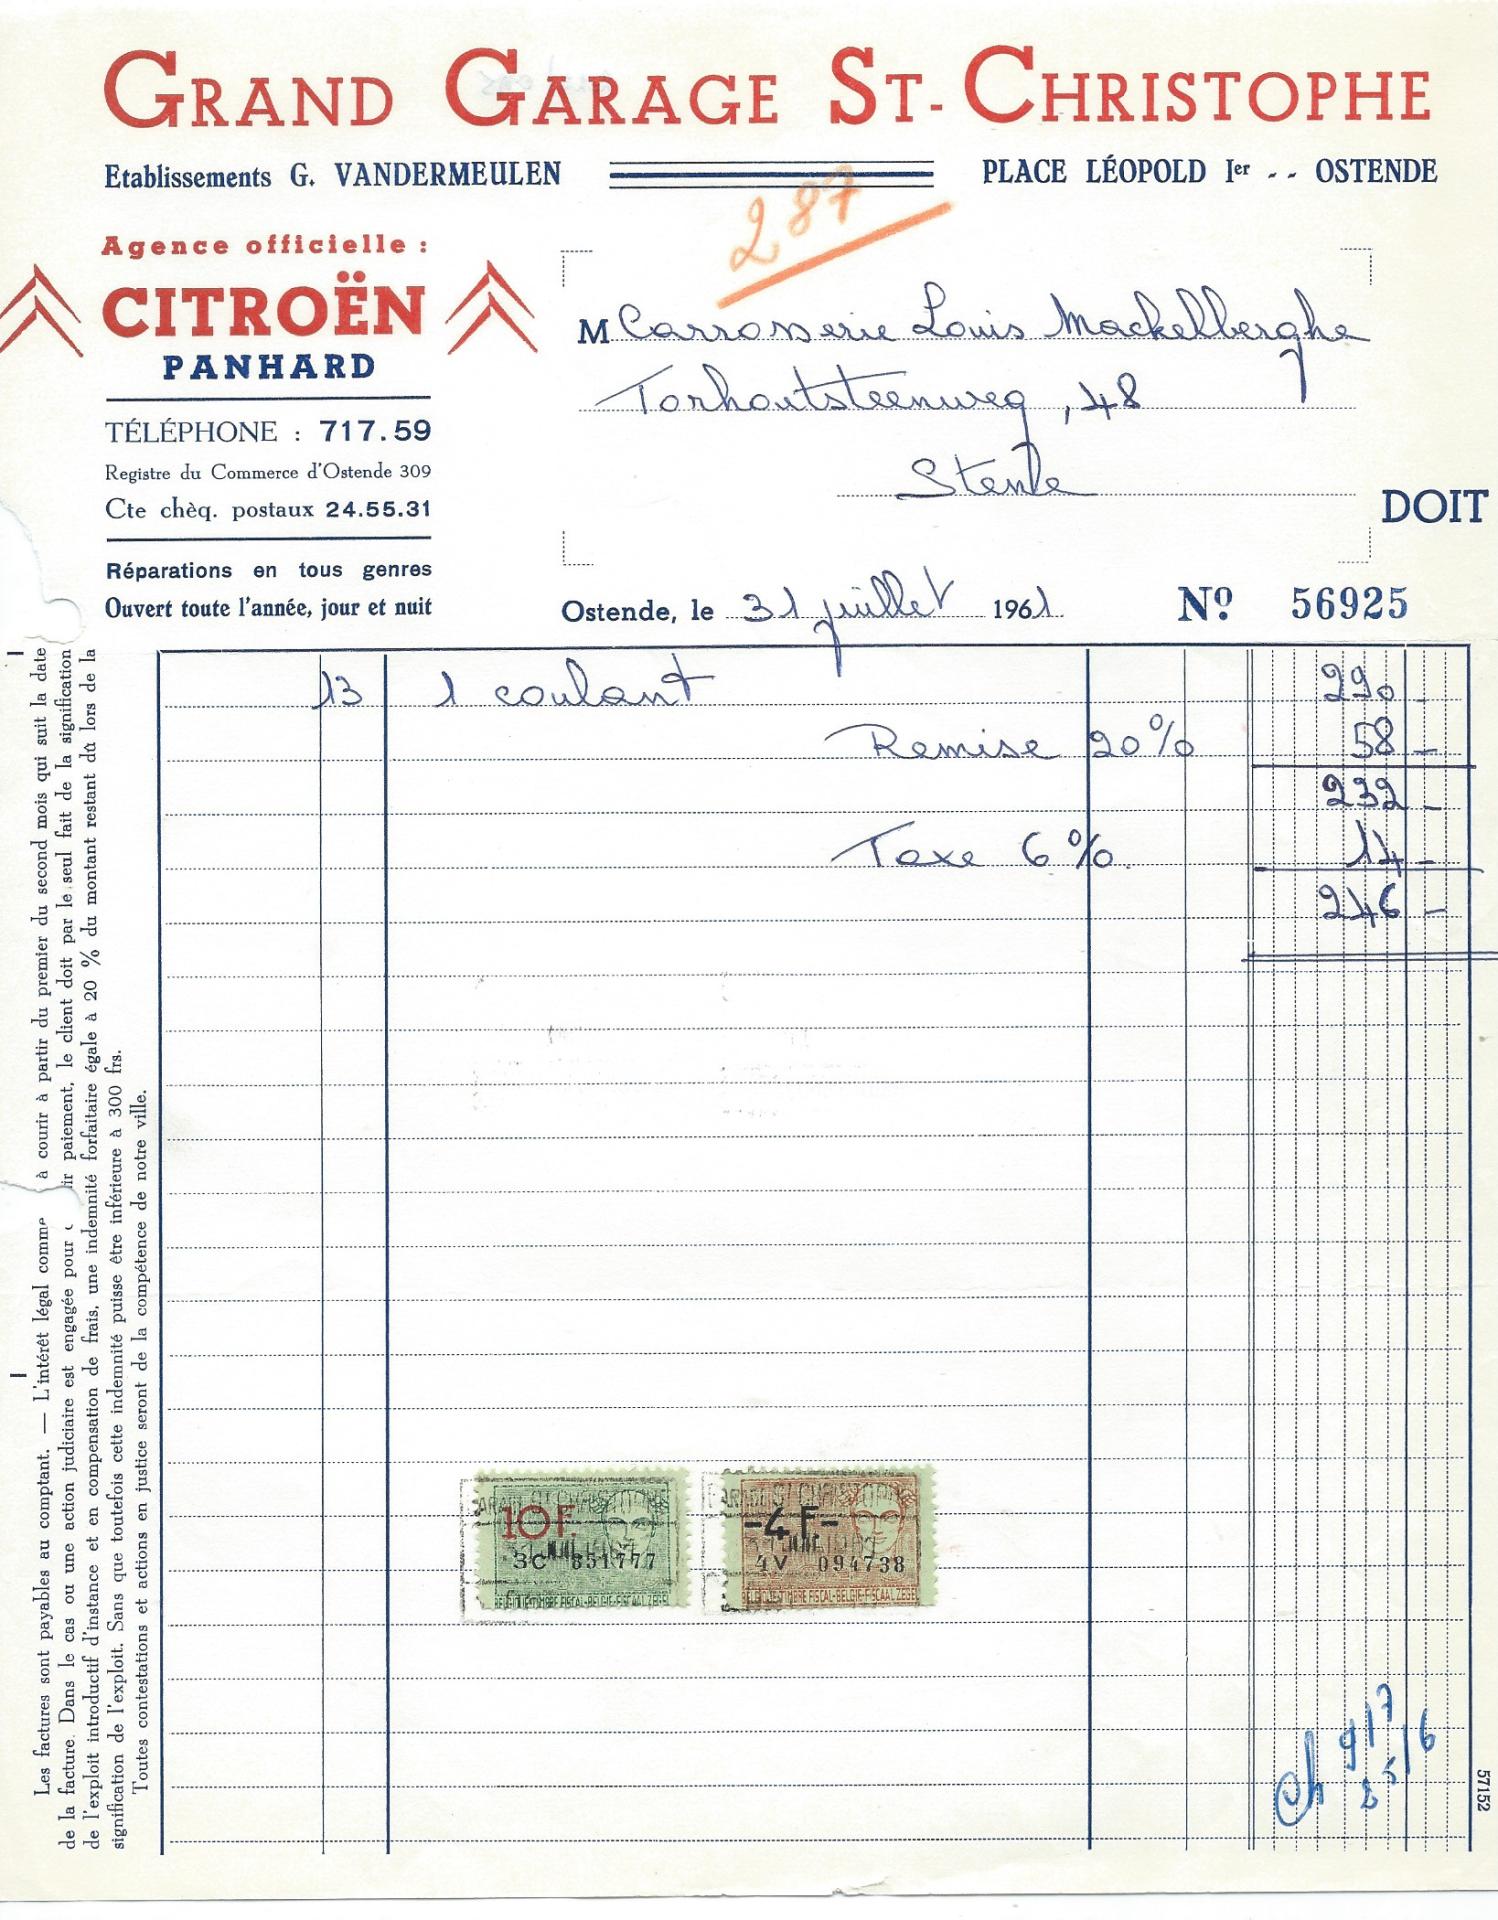 GRAND GARAGE ST-CHRISTOPHE
Etablissements G. VANDERMEULEN
PLACE LÉOPOLD Ier -- OSTENDE
287
Agence officielle :
CITROËN
PANHARD
TÉLÉPHONE : 717.59
Registre du Commerce d'Ostende 309
Cte chèq. postaux 24.55.31
Réparations en tous genres
Ouvert toute l'année, jour et nuit
M Carrosserie Louis Mackelberghe
Torhoutsteenweg, 48
Stene
DOIT
Ostende, le 31 juillet 1961
Nº 56925
13 1 coulant 290 -
Remise 20% 58 -
232 -
Taxe 6% 14 -
246 -
Les factures sont payables au comptant. — L'intérêt légal comme à courir à partir du premier du second mois qui suit la date
de la facture. Dans le cas ou une action judiciaire est engagée pour paiement, le client doit par le seul fait de la signification
de l'exploit introductif d'instance et en compensation de frais, une indemnité forfaitaire égale à 20 % du montant restant dû lors de la
signification de l'exploit. Sans que toutefois cette indemnité puisse être inférieure à 300 frs.
Toutes contestations et actions en justice seront de la compétence de notre ville.
10 F.
3C 851777
BELGIQUE-TIMBRE FISCAL-BELGIE-FISCAALZEGEL
-4 F-
4V 094738
BELGIQUE-TIMBRE FISCAL-BELGIE-FISCAALZEGEL
57152